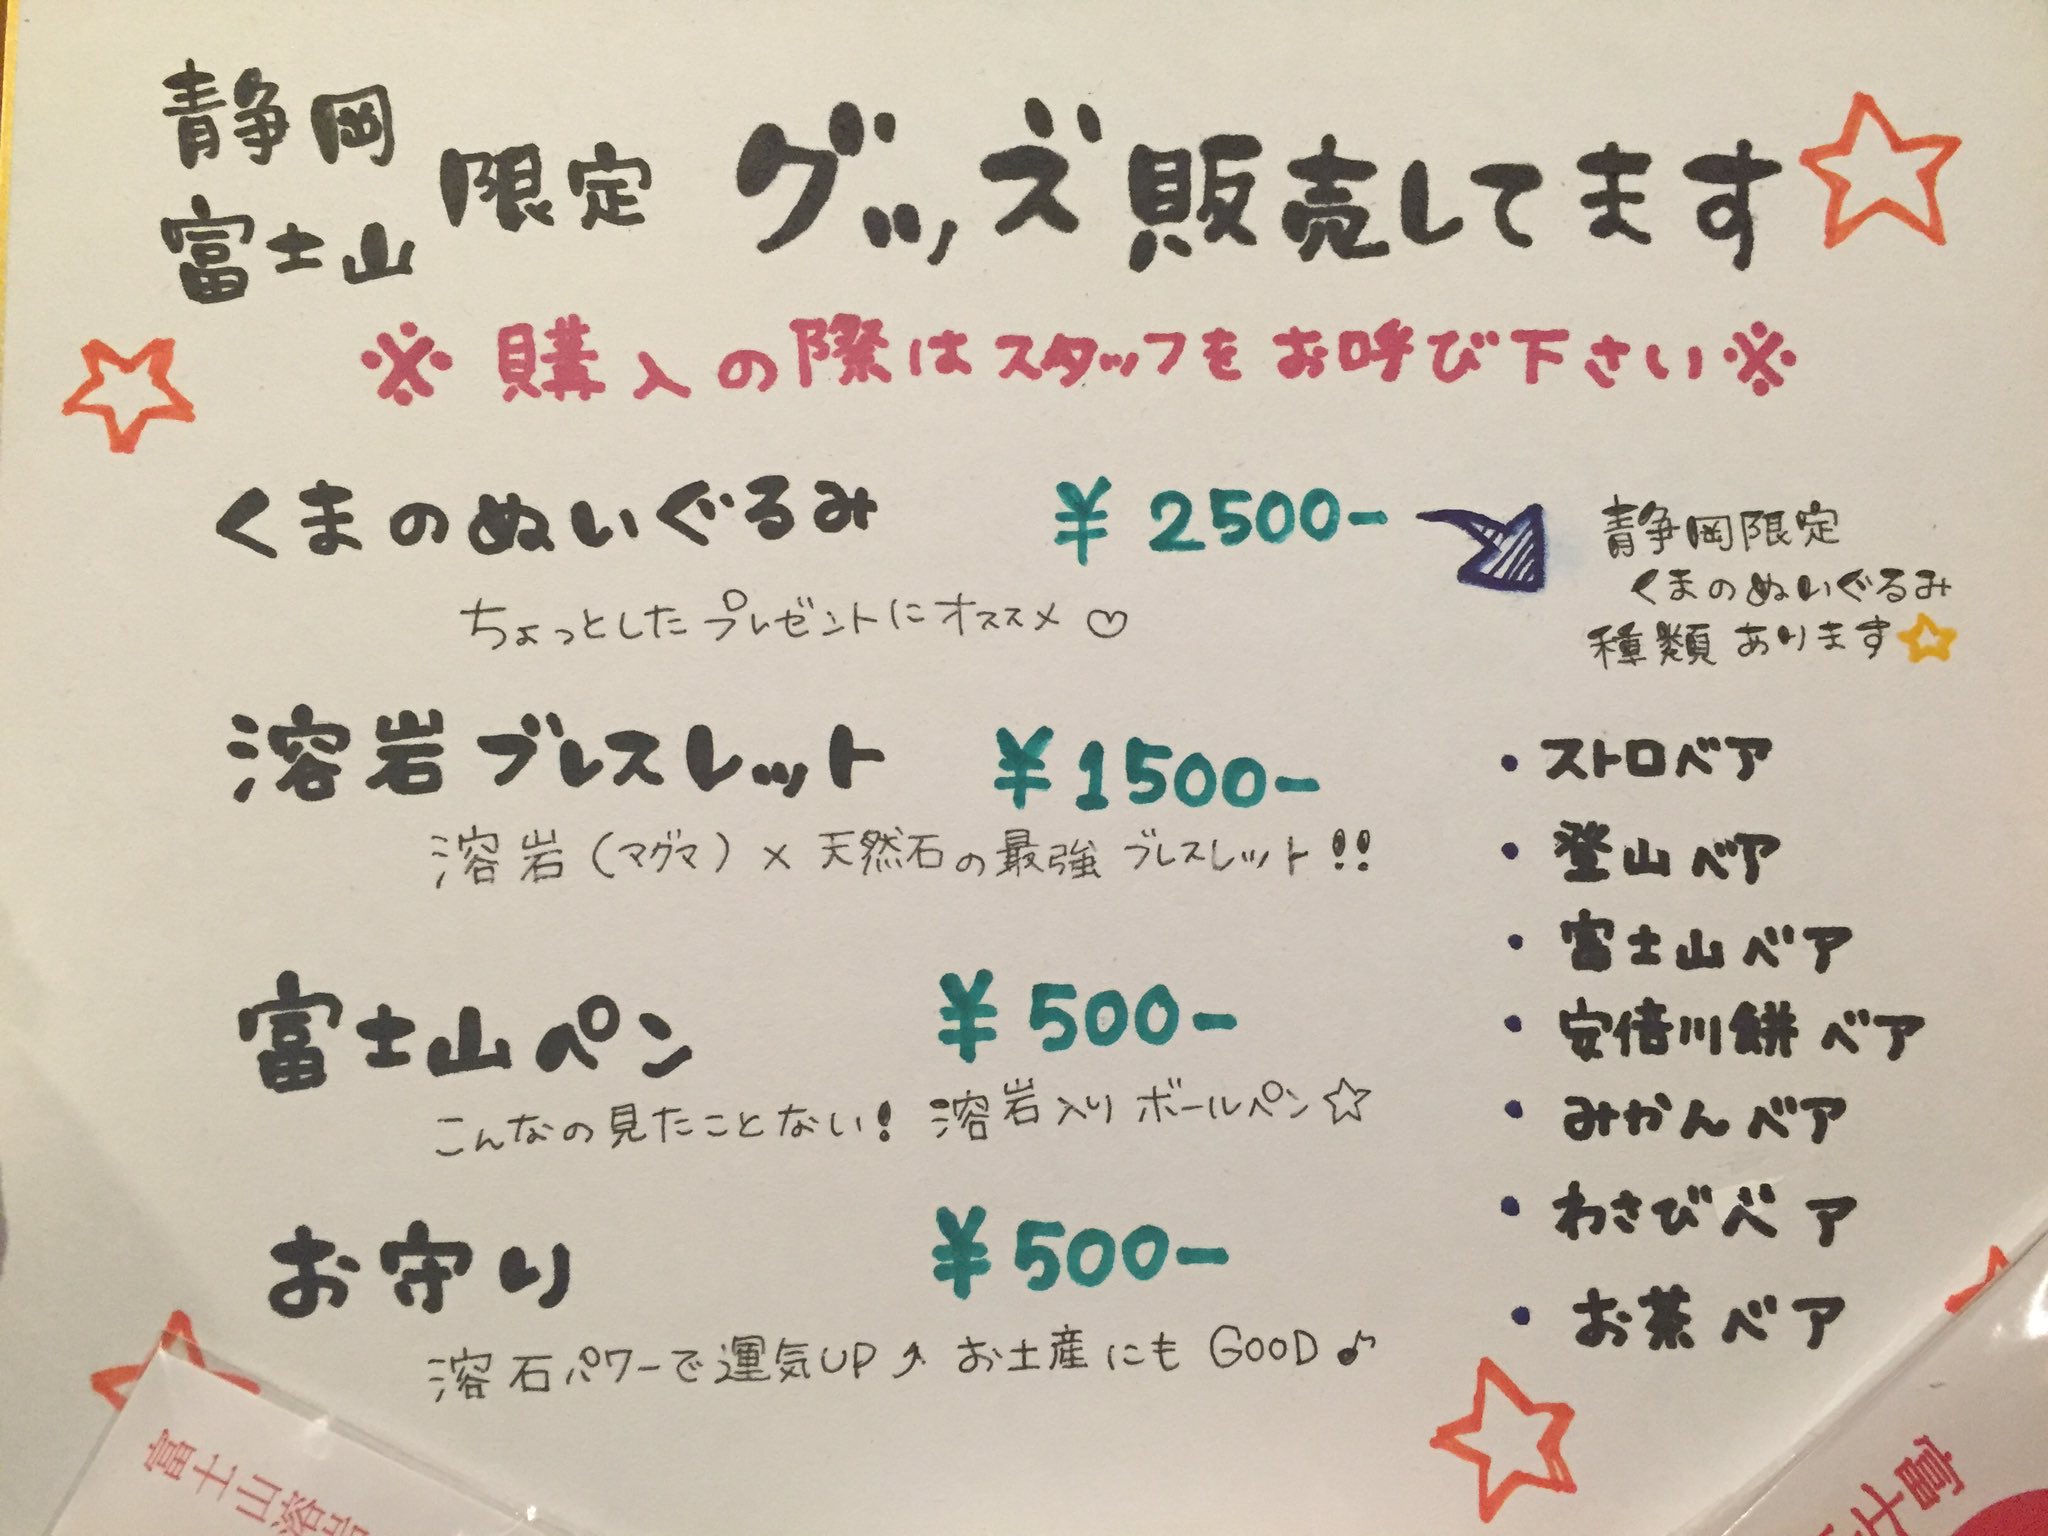 静岡
富士山
限定 グッズ販売してます☆
※購入の際はスタッフをお呼び下さい※
くまのぬいぐるみ ¥2500-
ちょっとしたプレゼントにオススメ♡
溶岩ブレスレット ¥1500-
溶岩(マグマ)×天然石の最強ブレスレット!!
富士山ペン ¥500-
こんなの見たことない! 溶岩入りボールペン☆
お守り ¥500-
溶石パワーで運気UP↗ お土産にもGOOD♪
静岡限定
くまのぬいぐるみ
種類あります☆
・ストロベア
・登山ベア
・富士山ベア
・安倍川餅ベア
・みかんベア
・わさびベア
・お茶ベア
富士山溶岩
富士